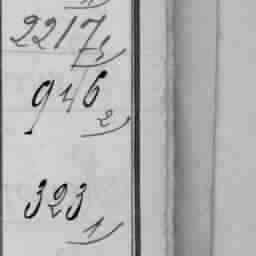 2217
946 2
323 1